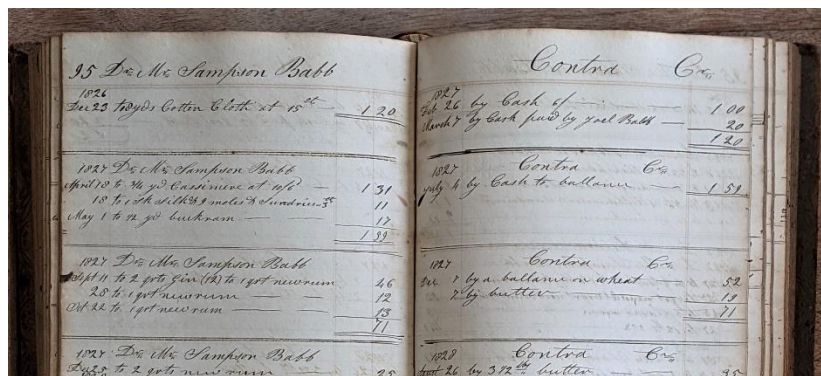 95 Dr Mr Sampson Babb
1826
Dec 23 to 8 yds Cotten Cloth at 15 ct — 1 20
1827 Dr Mr Sampson Babb
April 18 to 3/4 yd Cassimere at 10/6 — 1 31
18 to 1 sk silk & 9 moles & Sundries 11
May 1 to 1/2 yd buckram — 17
1827 Dr Mr Sampson Babb
Sept 11 to 2 qrts Gin (12) to 1 qrt new rum 46
28 to 1 qrt new rum — 12
Oct 22 to 1 qrt new rum — 13
71
1827 Dr Mr Sampson Babb
to 2 qrts new rum 25
Contra Cr
1827
26 by Cash of — 1 00
March 7 by Cash paid by Joel Babb — 20
1 20
1827 Contra Cr
July 4 by Cash to ballance — 1 59
1827 Contra Cr
Dec 7 by a ballance in wheat — 52
7 by butter — 19
71
1828 Contra Cr
26 by butter — 95